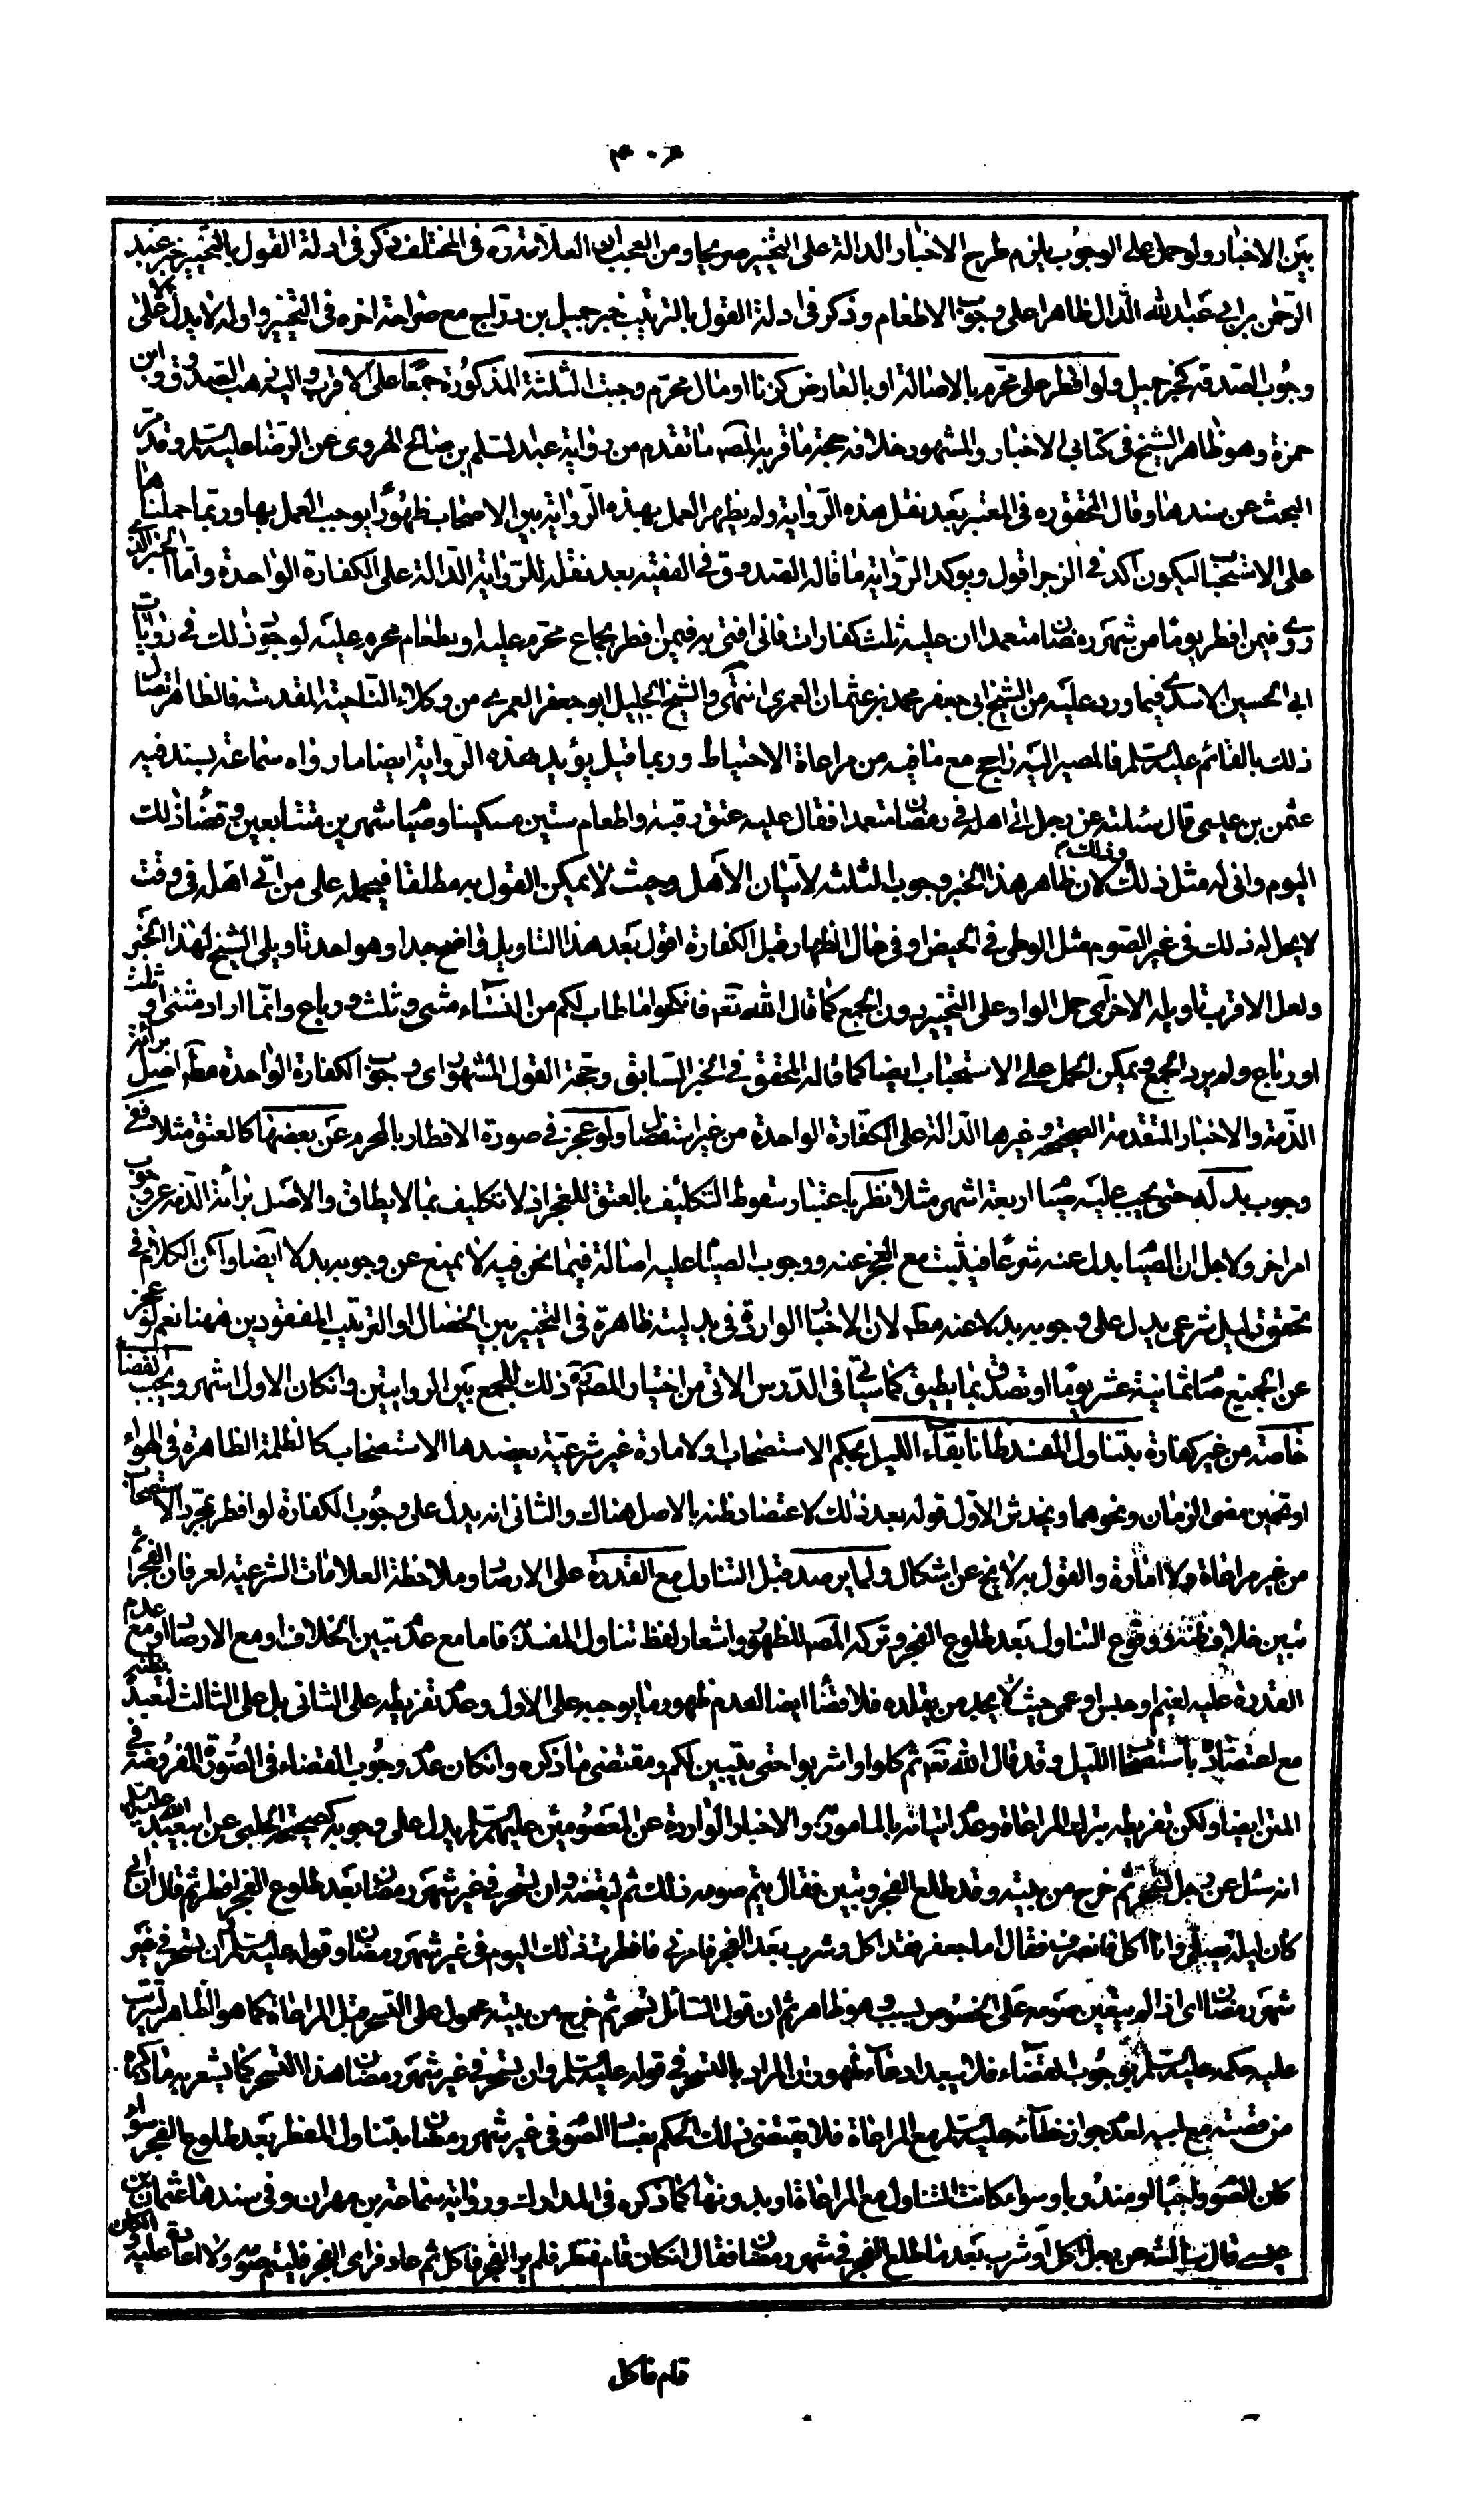 ٤٠٦
بين الاخبار ولو حمل على الوجوب يلزم طرح الاخبار الدالة على التخيير صريحا ومن العجب ان العلامة ره في المختلف ذكر في ادلة القول بالتخيير خبر عبد
الرحمن بن ابي عبد الله الدال ظاهرا على وجوب الاطعام وذكر في ادلة القول بالترتيب خبر جميل بن دراج مع صراحة اخره في التخيير واوله لا يدل الا على
وجوب الصدقة كخبر جميل ولو افطر على محرم بالاصالة او بالعارض كزنا او مال محرم وجبت الثلثة المذكورة جمعا على الاقرب واليه ذهب الصدوق وابن
حمزة وهو ظاهر الشيخ في كتابي الاخبار والمشهور خلافه حجة ما قربه المصـ ما تقدم من رواية عبد السلم بن صالح الهروي عن الرضا عليه السلم وقد مر
البحث عن سندها وقال المحقق ره في المعتبر بعد نقل هذه الرواية ولم يظهر العمل بهذه الرواية بين الاصحاب ظهورا يوجب العمل بها وربما حملناها
على الاستحباب ليكون اكد في الزجر اقول ويوكد الرواية ما قاله الصدوق في الفقيه بعد نقله للرواية الدالة على الكفارة الواحدة واما الخبر الذي
روي فيمن افطر يوما من شهر رمضان متعمدا ان عليه ثلث كفارات فاني افتي به فيمن افطر بجماع محرم عليه او بطعام محرم عليه لوجود ذلك في روايات
ابي الحسين الاسدي فيما ورد عليه من الشيخ ابي جعفر محمد بن عثمان العمري انتهى والشيخ الجليل ابو جعفر العمري من وكلاء الناحية المقدسة فالظاهر اتصال
ذلك بالقائم عليه السلم فالمصير اليه راجح مع ما فيه من مراعاة الاحتياط وربما قيل يؤيد هذه الرواية ايضا ما رواه سماعة بسند فيه
عثمن بن عيسى قال سئلته عن رجل اتى اهله في رمضان متعمدا فقال عليه عتق رقبة واطعام ستين مسكينا وصيام شهرين متتابعين وقضاء ذلك
اليوم وانى له مثل ذلك اليوم وذلك لان ظاهر هذا الخبر وجوب الثلثة لاتيان الاهل وحيث لا يمكن القول به مطلقا فيحمل على من اتى اهله في وقت
لا يحل له ذلك في غير الصوم مثل الوطي في الحيض او في حال الظهار قبل الكفارة اقول بعد هذا التاويل واضح جدا وهو احد تاويلي الشيخ لهذا الخبر
ولعل الاقرب تاويله الاخر اى حمل الواو على التخيير دون الجمع كما قال الله تعـ فانكحوا ما طاب لكم من النساء مثنى وثلث ورباع وانما اراد مثنى او ثلث
او رباع ولم يرد الجمع ويمكن الحمل على الاستحباب ايضا كما قاله المحقق في الخبر السابق وحجة القول المشهور اى وجوب الكفارة الواحدة مطـ اصل برائة
الذمة والاخبار المتقدمة الصحيحة وغيرها الدالة على الكفارة الواحدة من غير استفصال ولو عجز في صورة الافطار بالمحرم عن بعضها كالعتق مثلا ففي
وجوب بدله حتى يجب عليه صيام اربعة اشهر مثلا نظر باعتبار سقوط التكليف بالعتق للعجز اذ لا تكليف بما لا يطاق والاصل برائة الذمة عن وجوب
امر اخر ولاجل ان الصيام بدل عنه شرعا فيثبت مع العجز عنه ووجوب الصيام عليه اصالة فيما نحن فيه لا يمنع عن وجوبه بدلا ايضا ولكن الكلام في
تحقق دليل شرعي يدل على وجوبه بدلا عنه مطـ لان الاخبار الواردة في بدليته ظاهرة في التخيير بين الخصال او الترتيب المفقودين ههنا نعم لو عجز
عن الجميع صام ثمانية عشر يوما او تصدق بما يطيق كما سياتي في الدرس الاتي من اختيار المصـ ره ذلك للجمع بين الروايتين وان كان الاول اشهر ويجب القضاء
خاصة من غير كفارة بتناول المفسد ظانا بقاء الليل بحكم الاستصحاب ولامارة غير شرعية يعضدها الاستصحاب كالظلمة الظاهرة في الهواء
او تخمين مضى الزمان ونحوهما ويخدش الاول قوله بعد ذلك لاعتضاد ظنه بالاصل هناك والثاني انه يدل على وجوب الكفارة لو افطر بمجرد الاستصحاب
من غير مراعاة ولا امارة والقول به لا يخ عن اشكال ولما يرصد قبل التناول مع القدرة على الارصاد وملاحظة العلامات الشرعية لعرفان الفجر ثم
تبين خلاف ظنه ووقوع التناول بعد طلوع الفجر وتركه المصـ للظهور واشعار لفظ تناول المفسد فاما مع عدم تبين الخلاف او مع الارصاد او مع عدم
القدرة عليه لغيم او حبس او عمى حيث لا يجد من يقلده فلا قضاء ايضا لعدم ظهور ما يوجبه على الاول وعدم تفريطه على الثاني بل على الثالث لتعبده بظنه
مع اعتضاده باستصحاب الليل وقد قال الله تعـ ثم كلوا واشربوا حتى يتبين لكم ومقتضى ما ذكره وان كان عدم وجوب القضاء في الصورة المفروضة في
المتن ايضا ولكن تفريطه بترك المراعاة وعدم اتيانه بالمامور به والاخبار الواردة عن المعصومين عليهم السلم يدل على وجوبه كصحيحة الحلبي عن ابيعبد الله عليه السلم
انه سئل عن رجل تسحر ثم خرج من بيته وقد طلع الفجر وتبين فقال يتم صومه ذلك ثم ليقضه وان تسحر في غير شهر رمضان بعد طلوع الفجر افطر ثم قال ان ابي
كان ليلة يصلي وانا اكل فانصرف فقال اما جعفر فقد اكل وشرب بعد الفجر فامرني فافطرت ذلك اليوم في غير شهر رمضان وقوله عليه السلم ان تسحر في غير
شهر رمضان اى اذا لم يتعين صومه على الخصوص بسبب وهو ظاهر ثم ان قول السائل تسحر ثم خرج من بيته محمول على التسحر قبل المراعاة كما هو الظاهر لترتب
عليه حكمه عليه السلم بوجوب القضاء فلا يبعد ادعاء ظهور ان المراد بالتسحر في قوله عليه السلم وان تسحر في غير شهر رمضان هذا التسحر كما يشعر به ما ذكره
من قصته مع ابيه لعدم جواز خطائه عليه السلم مع المراعاة فلا يقتضى ذلك الحكم بفساد الصوم في غير شهر رمضان بتناول المفطر بعد طلوع الفجر سواء
كان الصوم واجبا او مندوبا وسواء كانت التناول مع المراعاة او بدونها كما ذكره في المدارك ورواية سماعة بن مهران وفي سندها عثمان بن
عيسى قال سالته عن رجل اكل او شرب بعد ما طلع الفجر في شهر رمضان فقال ان كان قام فنظر فلم ير الفجر فاكل ثم عاد فراى الفجر فليتم صومه ولا اعادة عليه وان كان
قام فاكل